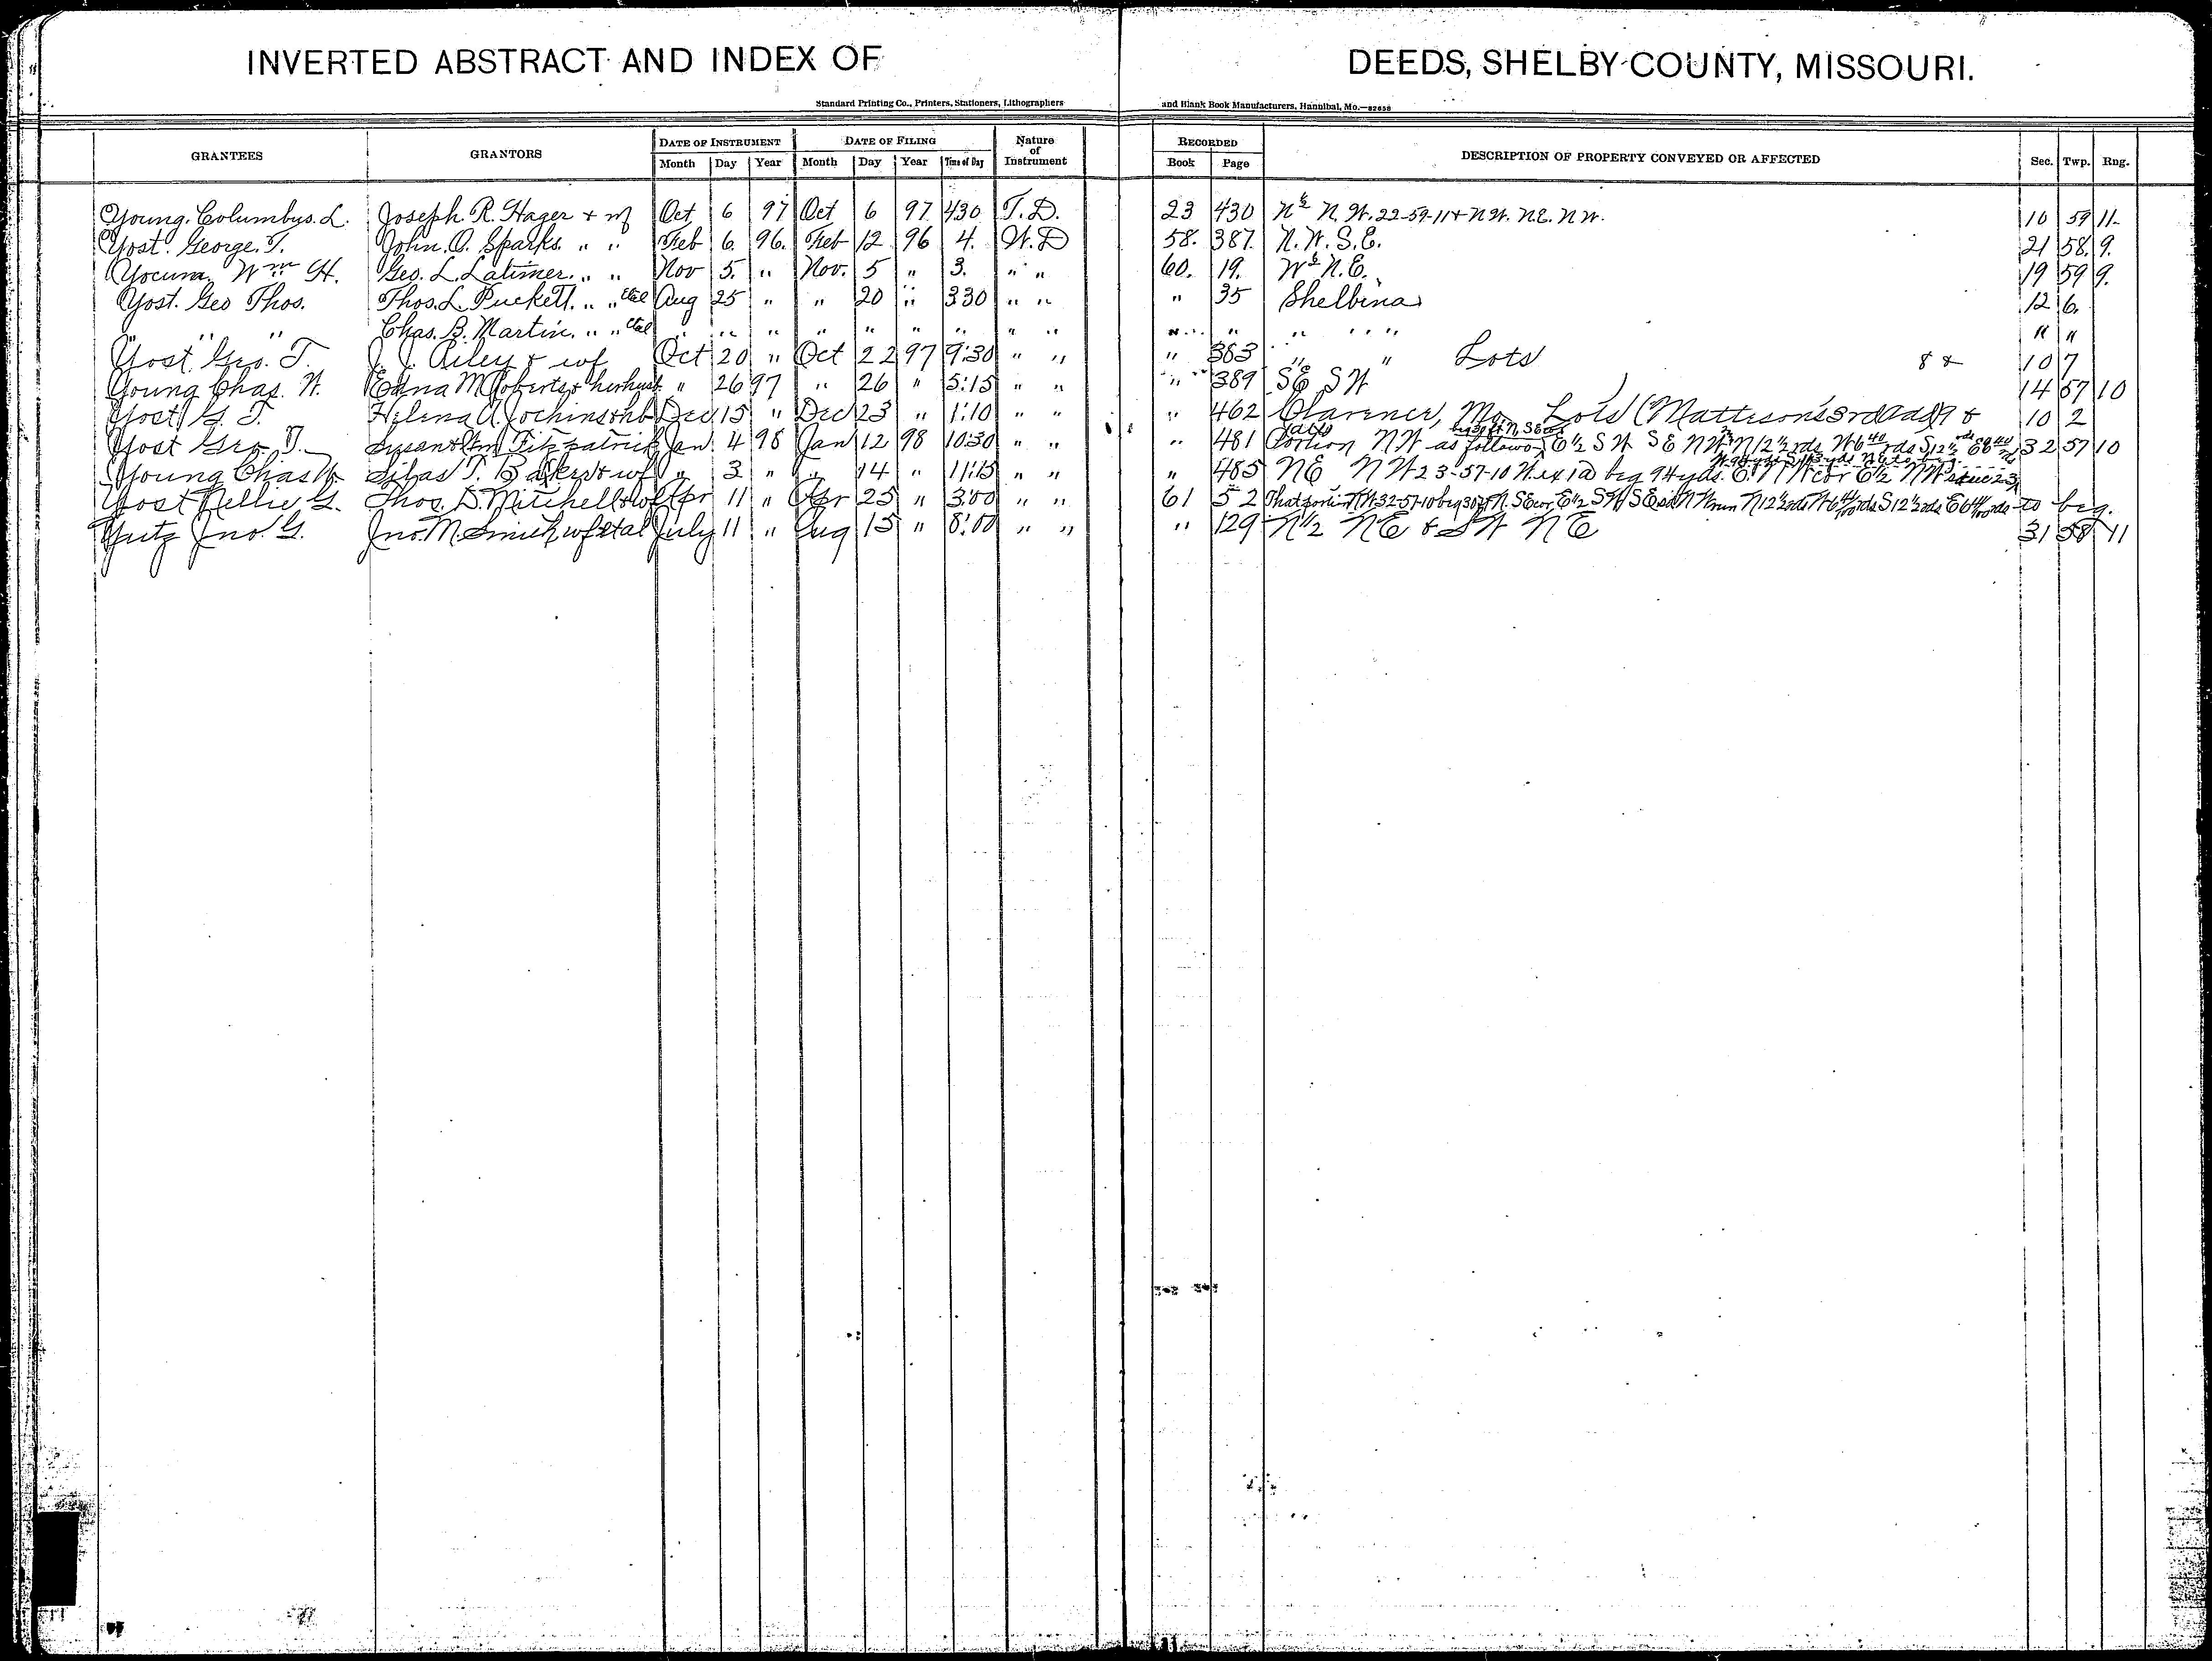 INVERTED ABSTRACT AND INDEX OF DEEDS, SHELBY COUNTY, MISSOURI.
Standard Printing Co., Printers, Stationers, Lithographers and Blank Book Manufacturers, Hannibal, Mo.—82658
GRANTEES GRANTORS DATE OF INSTRUMENT DATE OF FILING Nature of Instrument RECORDED DESCRIPTION OF PROPERTY CONVEYED OR AFFECTED Sec. Twp. Rng.
Month Day Year Month Day Year Time of Day Book Page
Young. Columbus. L. Joseph. R. Hager + wf Oct 6 97 Oct 6 97 430 T. D. 23 430 N½ N. W. 22-59-11 + N W. N E. N W. 10 59 11.
Yost. George. T. John. O. Sparks. " " Feb 6. 96. Feb 12 96 4. W. D 58. 387. N. W. S. E. 21 58. 9.
Yocum, Wm H. Geo. L. Latimer. " " Nov 5. " Nov. 5 " 3. " " 60. 19. W½ N. E. 19 59 9.
Yost. Geo Thos. Thos. L. Puckett. " " etal Aug 25 " " 20 " 330 " " " 35 Shelbina 12 6.
" " Chas. B. Martin. " " etal " " " " " " " " " " " " " " "
Yost, Geo. T. J. J. Riley & wf Oct 20 " Oct 22 97 9:30 " " " 363 " " Lots 8 & 10 7
Young Chas. W. Edna M Roberts & her husb " 26 97 " 26 " 5:15 " " " 389 SE SW 14 57 10
Yost G. T. Helena A. Dec 15 " Dec 23 " 1:10 " " " 462 Clarence, Mo. Lots (Mattison's 3rd add) 9 & 10 2
Yost Geo. T. Susan & Wm Fitzpatrick Jan. 4 98 Jan 12 98 10:30 " " " 481 Portion NW as follows E½ SW SE NW N 12½ rds W 6 40 rds S 12½ rds E 6 40 rds 32 57 10
Young Chas W Silas T. Bakers & wf " 3 " " 14 " 11:15 " " " 485 NE NW 23-57-10 W. ex 1a beg 94 yds. E. NW cor E½ NW sd sec 23,
Yost Nellie G. Thos. D. Mitchell & wf Apr 11 " Apr 25 " 3:00 " " 61 52 That port NW 32-57-10 beg 30 ft N. SE cor E½ SW SE sd NW run N 12½ rds W 6 44/100 rds S 12½ rds E 6 44/100 rds to beg.
Yutz Jno. G. Jno. M. Smick, wf etal July 11 " Aug 15 " 8:00 " " " 129 N½ NE & SW NE 31 58 11